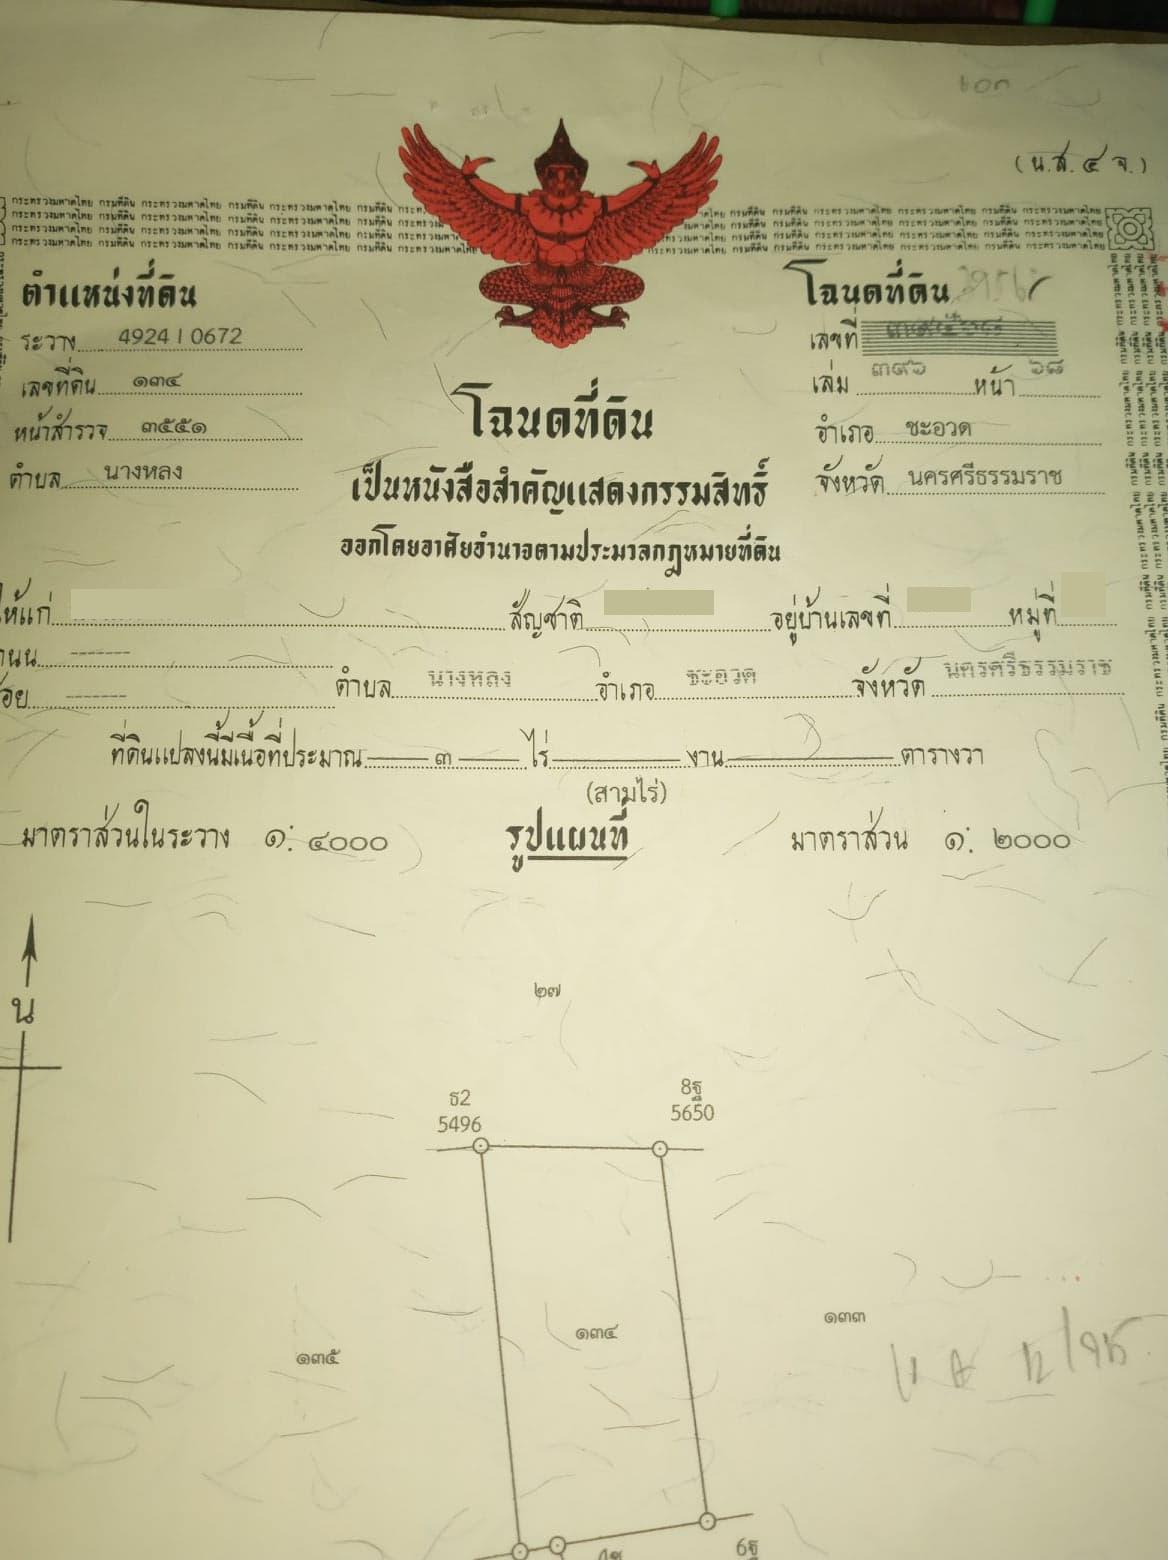 (น.ส.๔ จ.)
กระทรวงมหาดไทย กรมที่ดิน กระทรวงมหาดไทย กรมที่ดิน กระทรวงมหาดไทย กรมที่ดิน กระทรวงมหาดไทย กรมที่ดิน
ตำแหน่งที่ดิน
โฉนดที่ดิน
ระวาง 4924 I 0672
เลขที่
เลขที่ดิน ๑๓๔
เล่ม ๓๙๖ หน้า ๖๘
หน้าสำรวจ ๓๕๕๑
อำเภอ ชะอวด
ตำบล นางหลง
จังหวัด นครศรีธรรมราช
โฉนดที่ดิน
เป็นหนังสือสำคัญแสดงกรรมสิทธิ์
ออกโดยอาศัยอำนาจตามประมวลกฎหมายที่ดิน
ให้แก่ สัญชาติ อยู่บ้านเลขที่ หมู่ที่
ตำบล นางหลง อำเภอ ชะอวด จังหวัด นครศรีธรรมราช
ที่ดินแปลงนี้มีเนื้อที่ประมาณ ๓ ไร่ งาน ตารางวา
(สามไร่)
มาตราส่วนในระวาง ๑: ๔๐๐๐ รูปแผนที่ มาตราส่วน ๑: ๒๐๐๐
น
๒๗
ธ2
5496
8ฐ
5650
๑๓๕
๑๓๔
๑๓๓
6ฐ